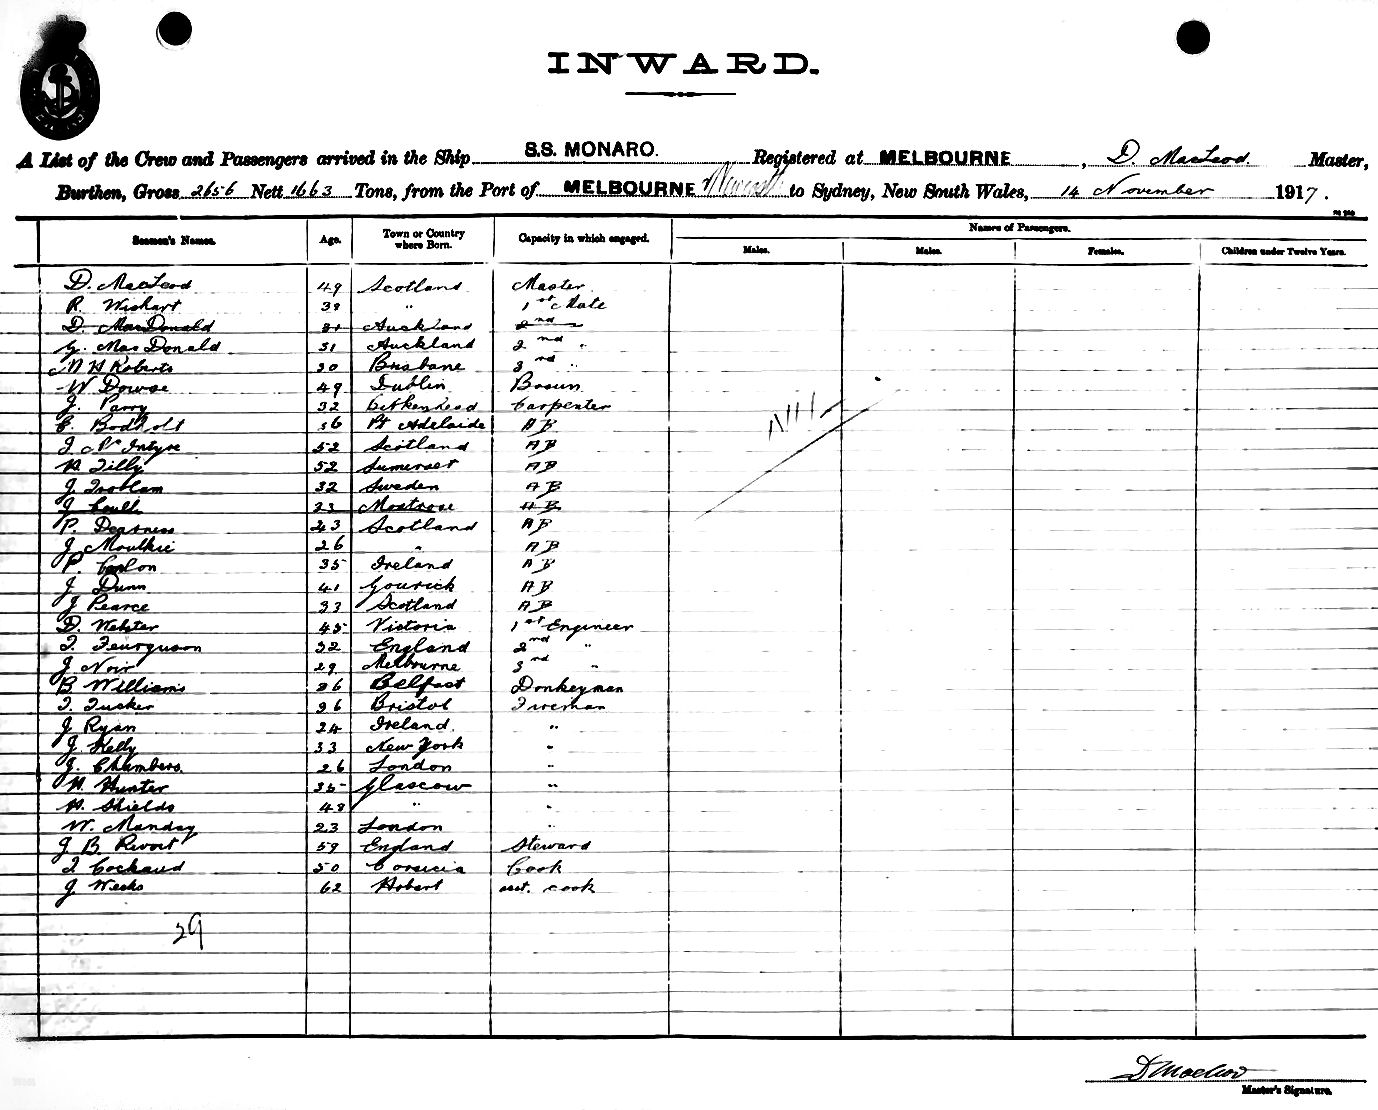 INWARD.
A List of the Crew and Passengers arrived in the Ship S.S. MONARO. Registered at MELBOURNE, D. MacLeod. Master,
Burthen, Gross 2656 Nett 1663 Tons, from the Port of MELBOURNE Newcastle to Sydney, New South Wales, 14 November 1917.
Names of Passengers.
Seamen's Names. Age. Town or Country where Born. Capacity in which engaged. Males. Males. Females. Children under Twelve Years.
D. MacLeod 49 Scotland Master
R. Wishart 38 " 1st Mate
D. MacDonald 31 Auckland 2nd
G. MacDonald 31 Auckland 2nd "
H Roberts 30 Brisbane 3rd "
W Dowse 49 Dublin Bosun
J. Parry 32 Birkenhead Carpenter
C. Bodholt 36 Pt Adelaide AB
J McIntyre 52 Scotland AB
H Tilly 52 Sumerset AB
J 32 Sweden AB
J Coull 23 Montrose AB
P. Dearness 43 Scotland AB
J Moulkie 26 " AB
P. Conlon 35 Ireland AB
J Dunn 41 Gourick AB
J Pearce 33 Scotland AB
D. Webster 45 Victoria 1st Engineer
T. Feurguson 32 England 2nd "
J Noir 29 Melbourne 3rd "
B Williams 36 Belfast Donkeyman
T. Tucker 36 Bristol Fireman
J Ryan 24 Ireland. "
J Kelly 33 New York "
J. Chambers. 26 London "
H. Hunter 35 Glascow "
H. Shields 48 " "
W. Manday 23 London "
J B. 59 England Steward
50 Corsicia Cook
J Weeks 62 Hobart asst. cook
NIL
29
D Macleod
Master's Signature.